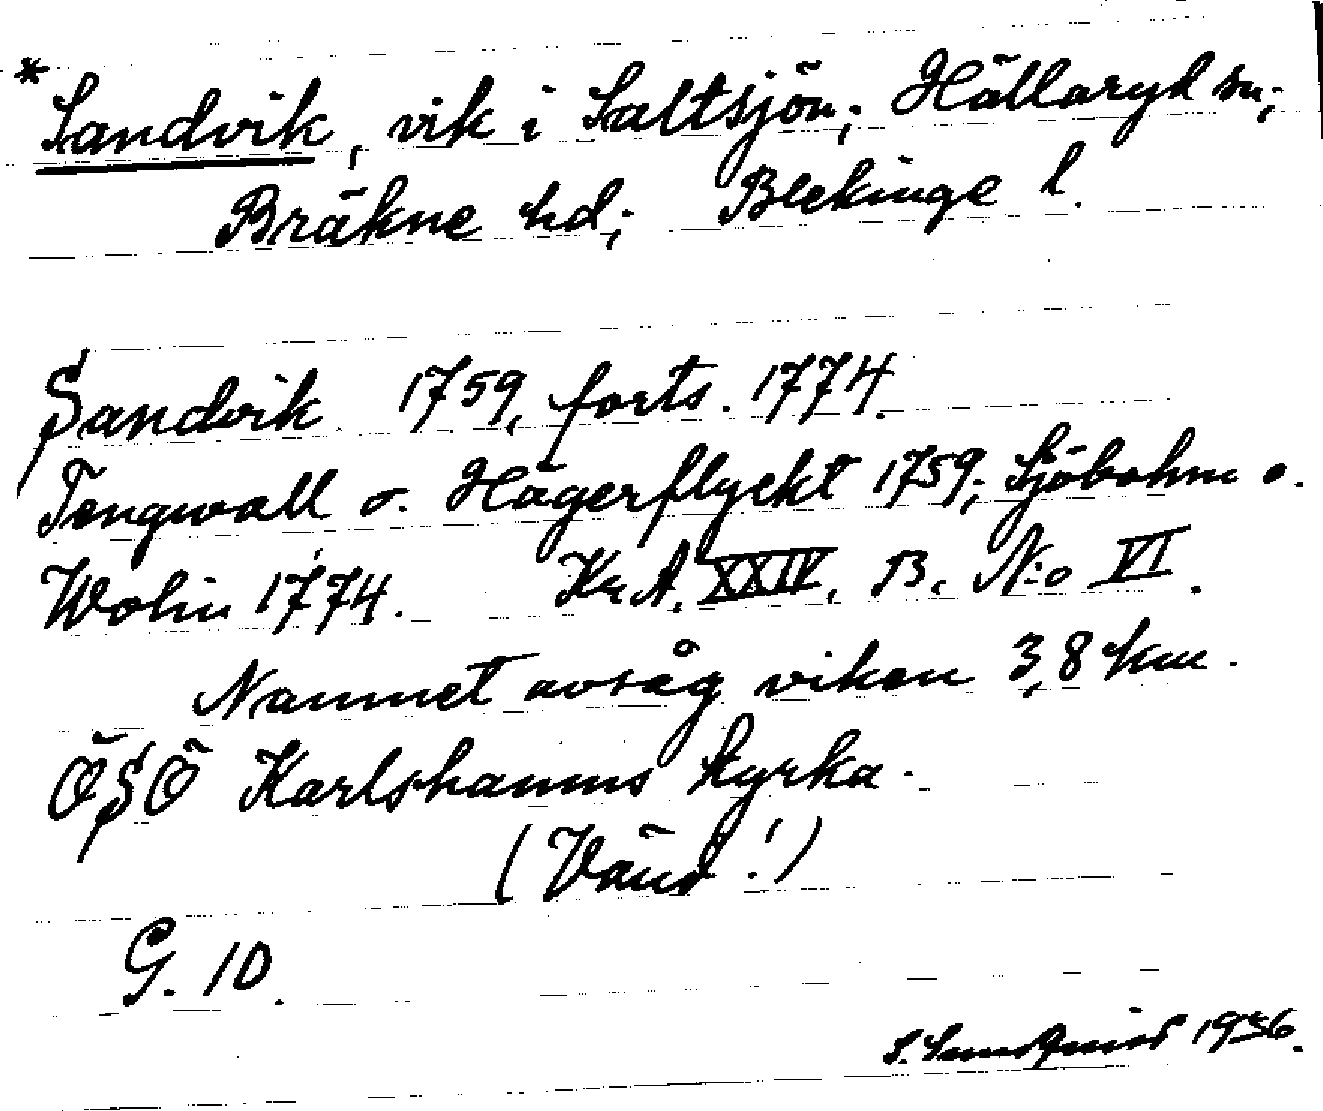 *Sandvik, vik i Saltsjön; Hällaryd sn;
Bräkne hd; Blekinge l.
Sandvik 1759, forts. 1774.
Tengwall o. Hägerflyckt 1759; Sjöbohm o.
Wolin 1774. Kr.A. XXIV. B. N:o VI.
Namnet avsåg viken 3,8 km.
ÖSÖ Karlshamns kyrka.
(Vänd!)
G. 10.
S. Sundquist 1936.